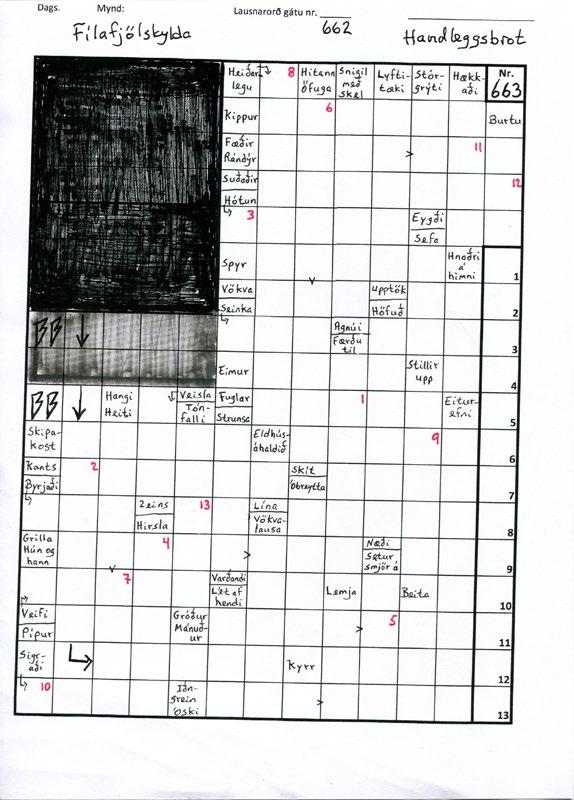 Dags. Mynd: Lausnarorð gátu nr.
662
Fílafjölskylda
Handleggsbrot
Heiðar-
legu
8
Hitann
Öfuga
Snigil
með
skel
Lyfti-
tæki
Stór-
grýti
Hækk-
aði
Nr.
663
Kippur
6
Burtu
Fæðir
Rándýr
>
11
Suðaðir
Hótun
12
3
Eygði
Sefa
Spyr
Hnoðri
á
himni
1
Vökva
Seinka
Upptök
Höfuð
2
BB
Agnúi
Færðu
til
3
Eimur
Stillir
upp
4
BB
Hangi
Heiti
Veisla
Tón-
falli
Fuglar
Strunsa
1
Eitur-
efni
5
Skipa-
kost
Eldhús-
áhaldið
9
6
Kants
Byrjaði
2
Skít
Óbreytta
7
2eins
Hirsla
13
Lína
Vökva-
lausa
8
Grilla
Hún og
hann
4
>
Næði
Setur
smjör á
9
7
Varðandi
Lét af
hendi
Lemja
Beita
10
Veifi
Pípur
Gróður
Mánuð-
ur
>
5
11
Sigr-
aði
Kyrr
12
10
Iðn-
grein
Óski
>
13